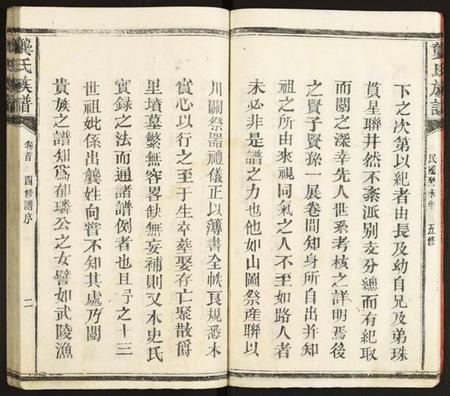 龔氏族譜
民國癸未年
五修
下之次第以紀者由長及幼自兄及弟珠
貫星聯井然不紊派別支分總而有紀取
而閱之深幸先人世系考核之詳明焉後
之賢子賢孫一展卷間知身所自出并知
祖之所由來視同氣之人不至如路人者
未必非是譜之力也他如山圖祭產聯以
川關祭器禮儀正以薄書全帙良規悉本
實心以行之至于生卒葬娶存亡聚散爵
里墳墓繁無容畧缺無妄補則又本史氏
實錄之法而通諸譜例者也且予之十三
世祖妣係出龔姓向嘗不知其處乃閱
貴族之譜知為郁璘公之女譬如武陵漁
龔氏族譜
卷首
四修譜序
二